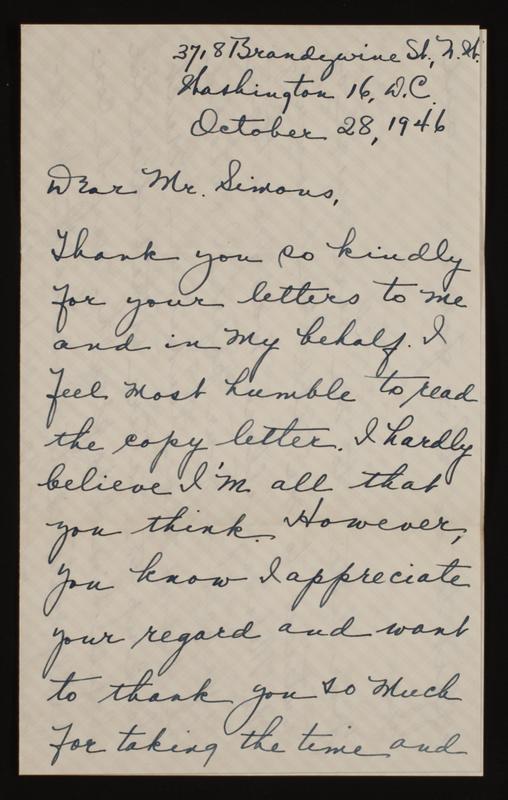 3718 Brandywine St., N.W.
Washington 16, D.C.
October 28, 1946
Dear Mr. Simons,
Thank you so kindly
for your letters to me
and in my behalf. I
feel most humble to read
the copy letter. I hardly
believe I'm all that
you think. However,
you know I appreciate
your regard and want
to thank you so much
for taking the time and